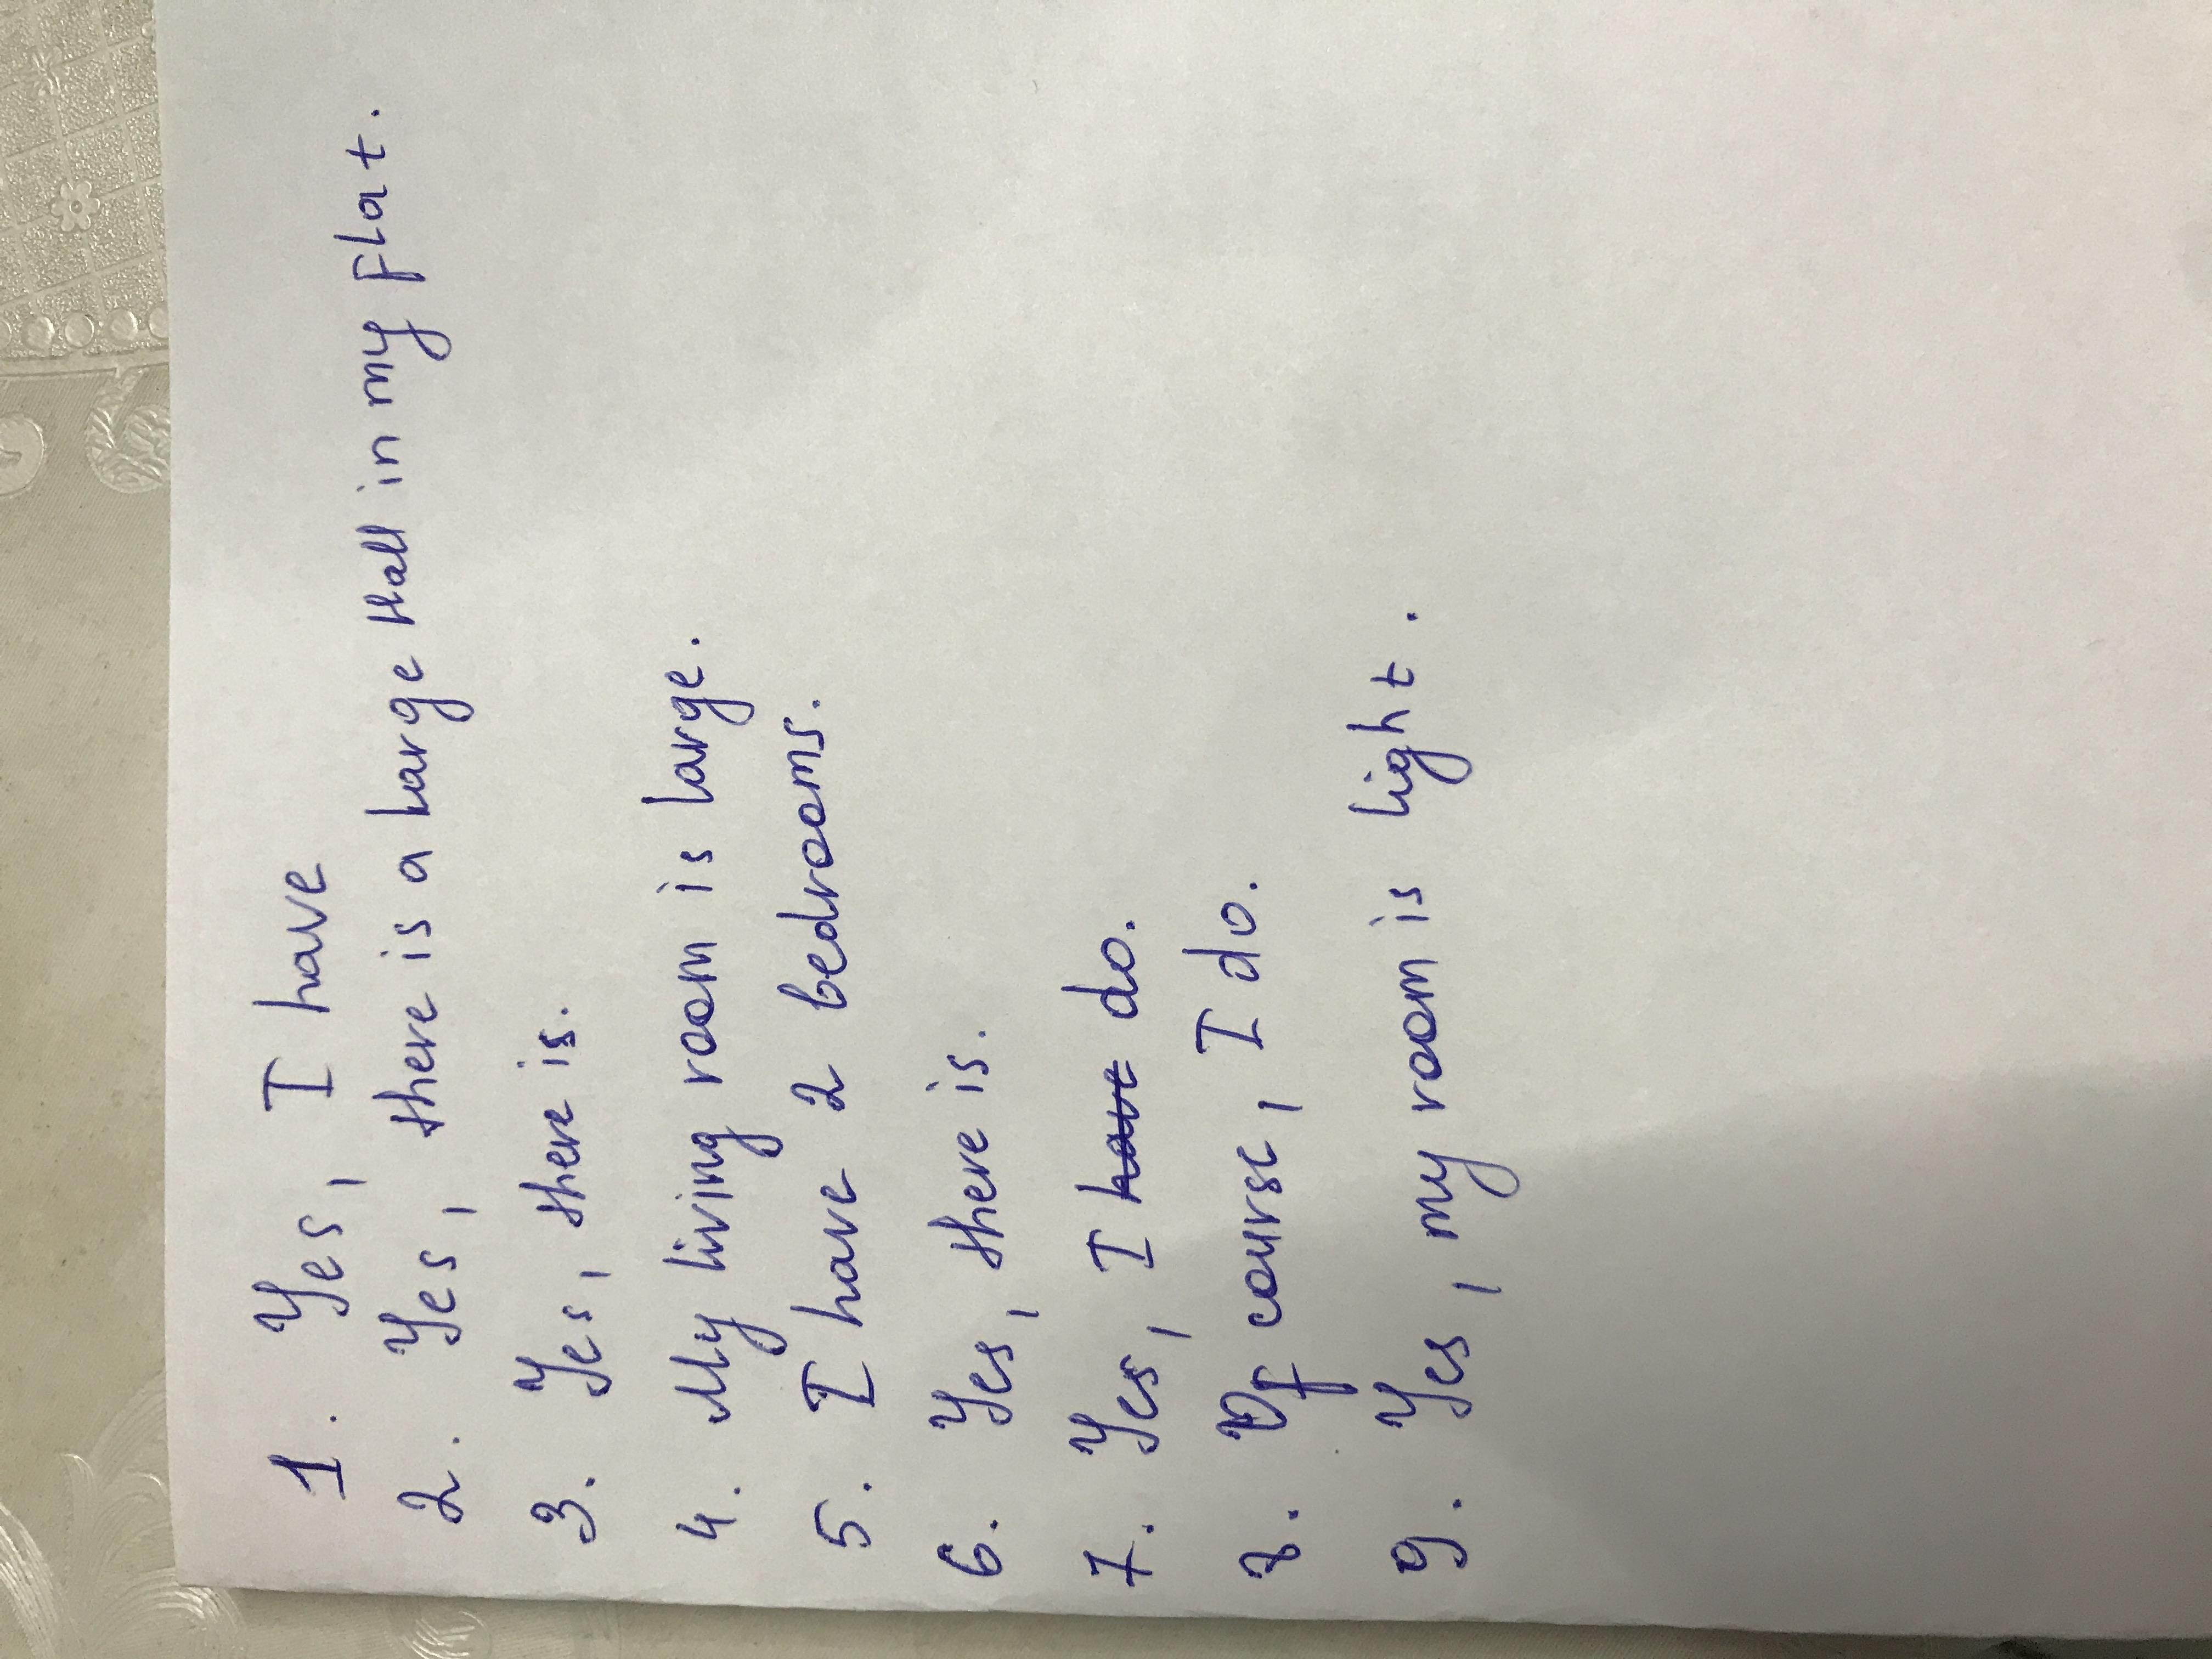 1. Yes, I have
2. Yes, there is a large hall in my flat.
3. Yes, there is.
4. My living room is large.
5. I have 2 bedrooms.
6. Yes, there is.
7. Yes, I have do.
8. Of course, I do.
9. Yes, my room is light.